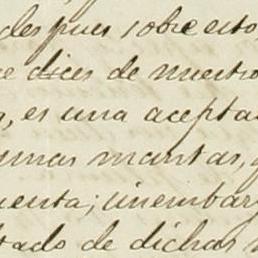 despues sobre esto,
e dices de nuestro
, es una acepta
unas mantas,
uenta; sinembarg
tado de dichas